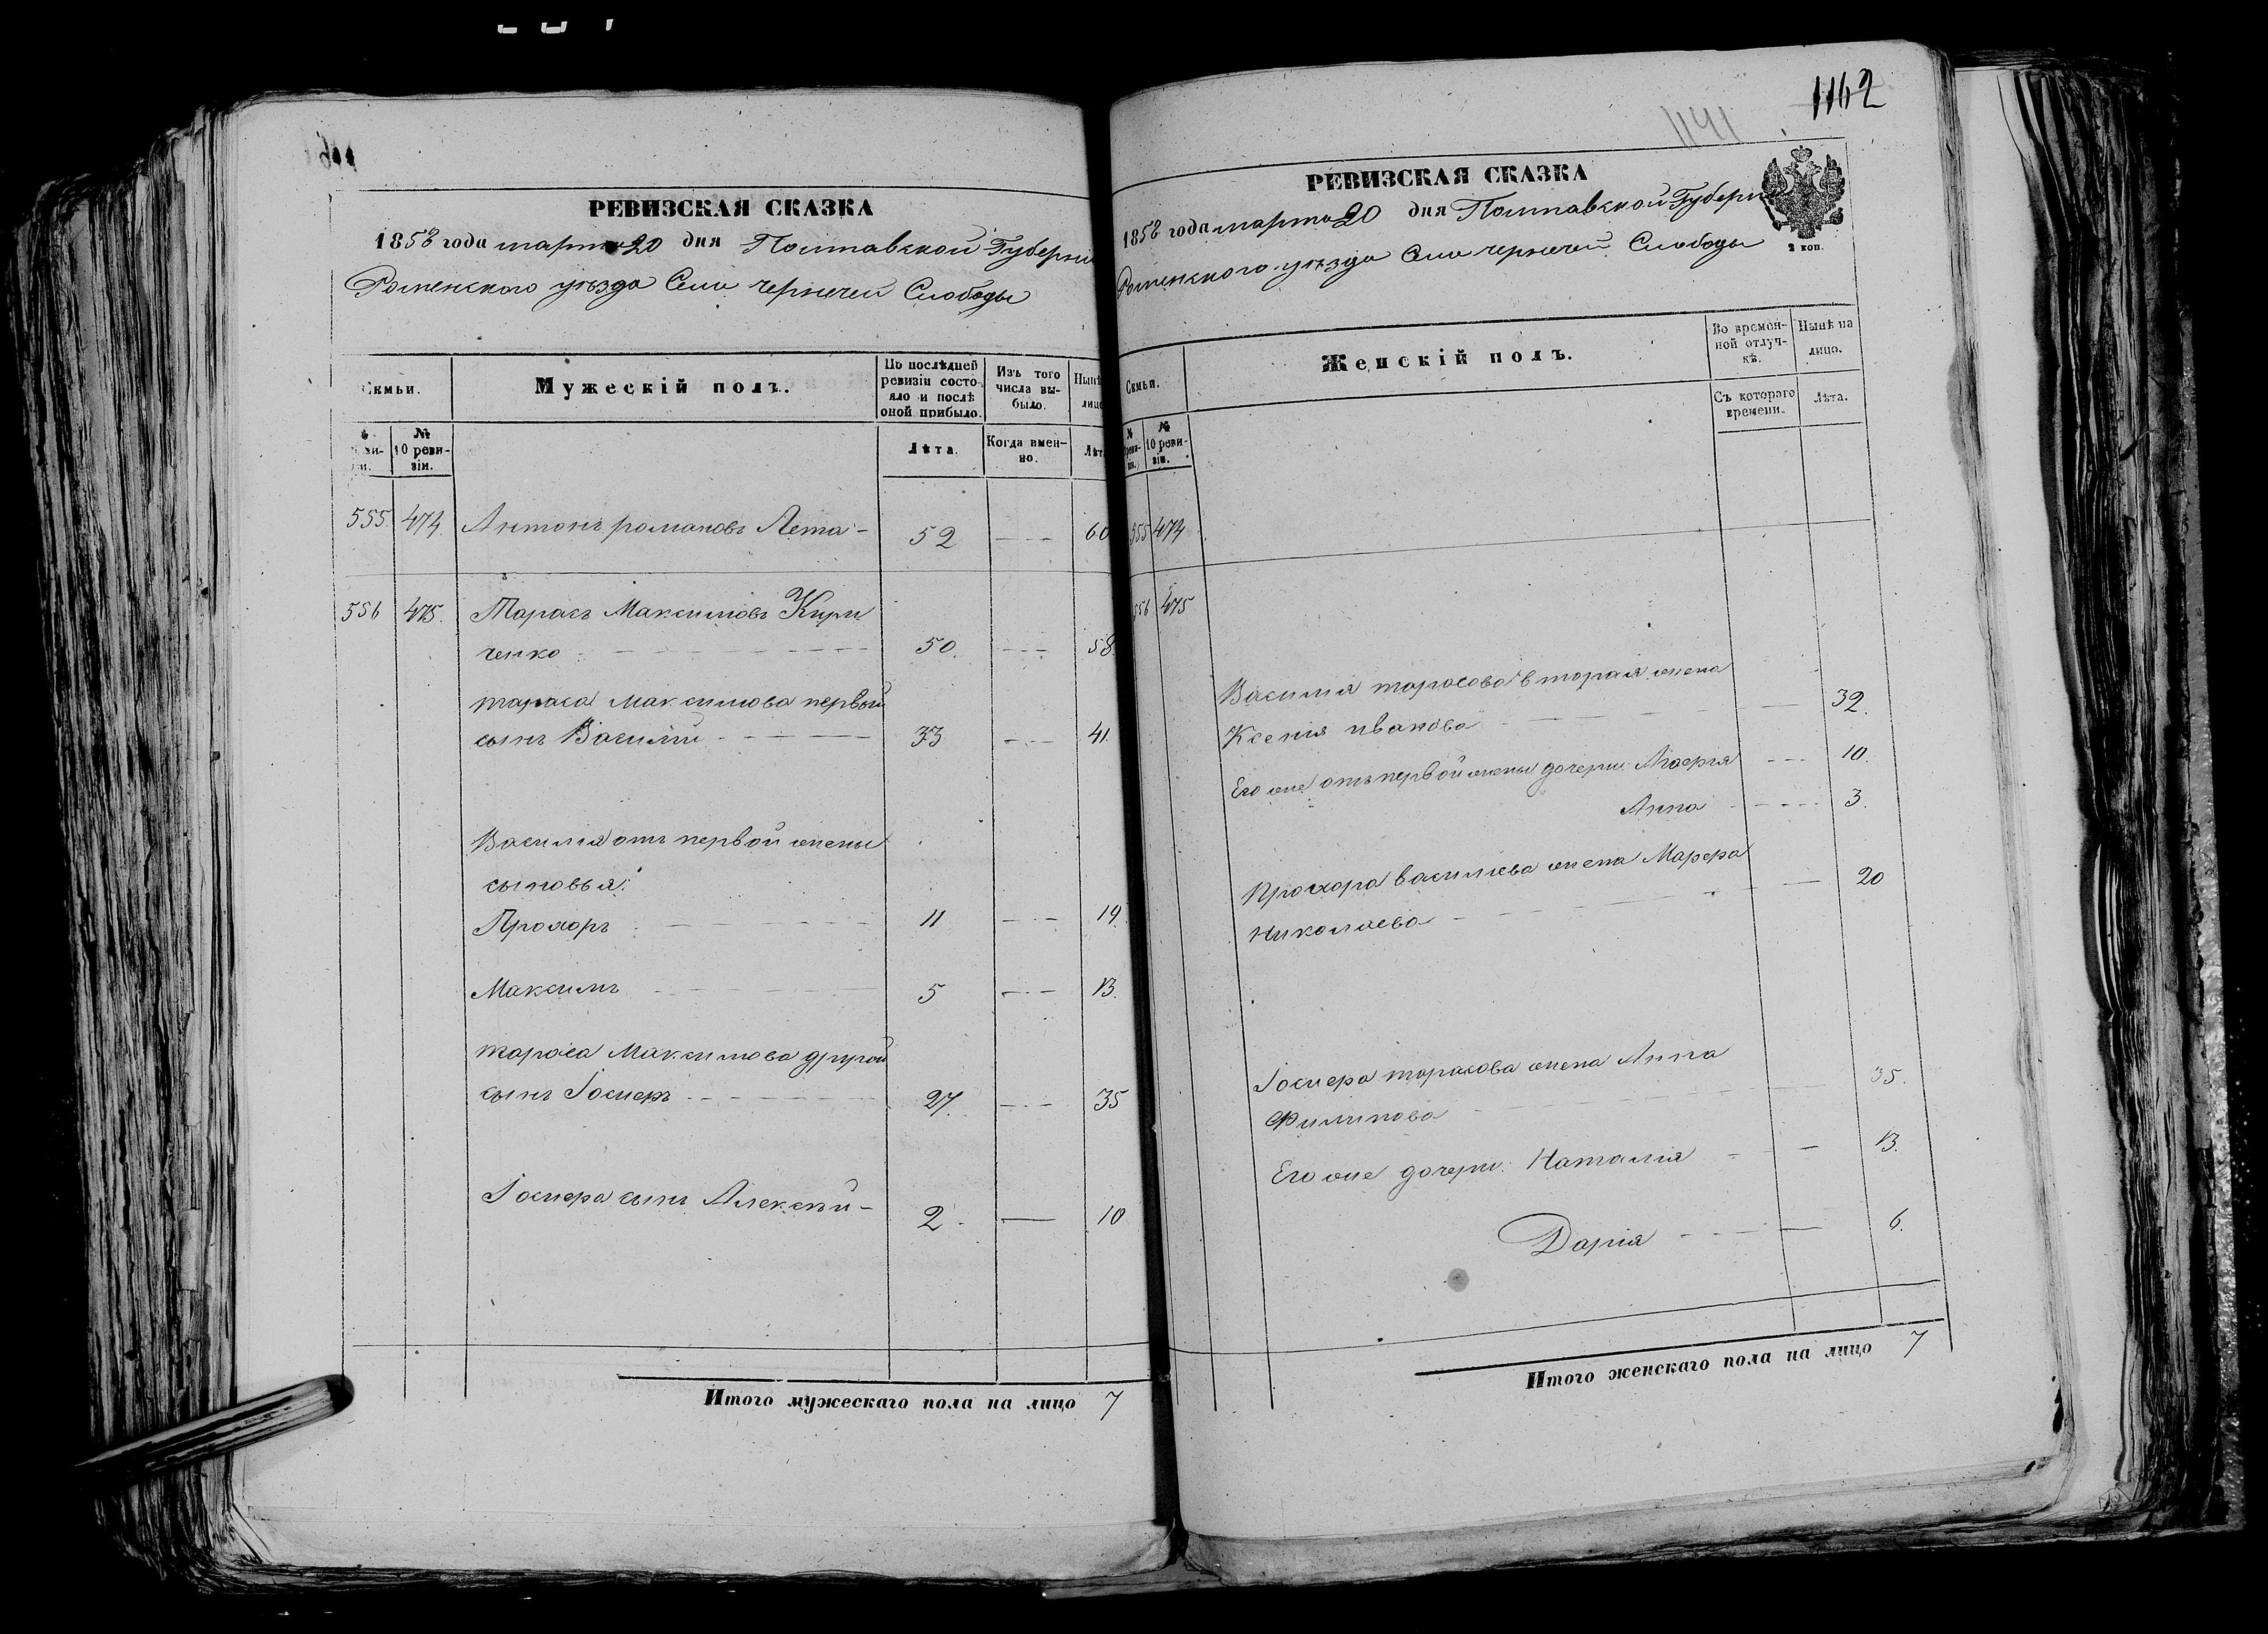 РЕВИЗСКАЯ СКАЗКА
1858 года марта 20 дня Полтавской Губерни
Роменского уѣзда Села Чернечей Слободы
Семьи.
Мужескій полъ.
По послѣдней ревизіи состояло и послѣ оной прибыло.
Изъ того числа выбыло.
Нынѣ
лицо
№
10 ревизіи.
Лѣта.
Когда имен-
но.
Лѣта
555 474. Антонъ романовъ Лета - 52 60
556 475. Тарасъ Максимовъ Кири
ченко 50. 58.
тараса Максимова первый
сынъ Василій 33 41.
Василія отъ первой жены
сыновья:
Прохоръ 11 19.
Максимъ 5 13.
тараса Максимова другой
сынъ Іосифъ 27. 35
Іосифа сынъ Алексѣй - 2. 10
Итого мужескаго пола на лицо 7
1162
1141
РЕВИЗСКАЯ СКАЗКА
1858 года марта 20 дня Полтавской Губерни
Роменского уѣзда Села Чернечей Слободы
2 коп.
Семьи.
Женскій полъ.
Во времен-
ной отлуч-
кѣ.
Нынѣ на
лицо.
Съ котораго
времени.
Лѣта.
№
10 реви-
зіи.
555 474
556 475
Василія тарасова вторая жена
Ксенія иванова 32.
Его же отъ первой жены дочери: 10.
Анна 3.
Прохора василіева жена Марфа
Николаева 20
Іосифа тарасова жена Анна
Филипова 35.
Его же дочери: Наталія 13.
Дарія 6.
Итого женскаго пола на лицо 7